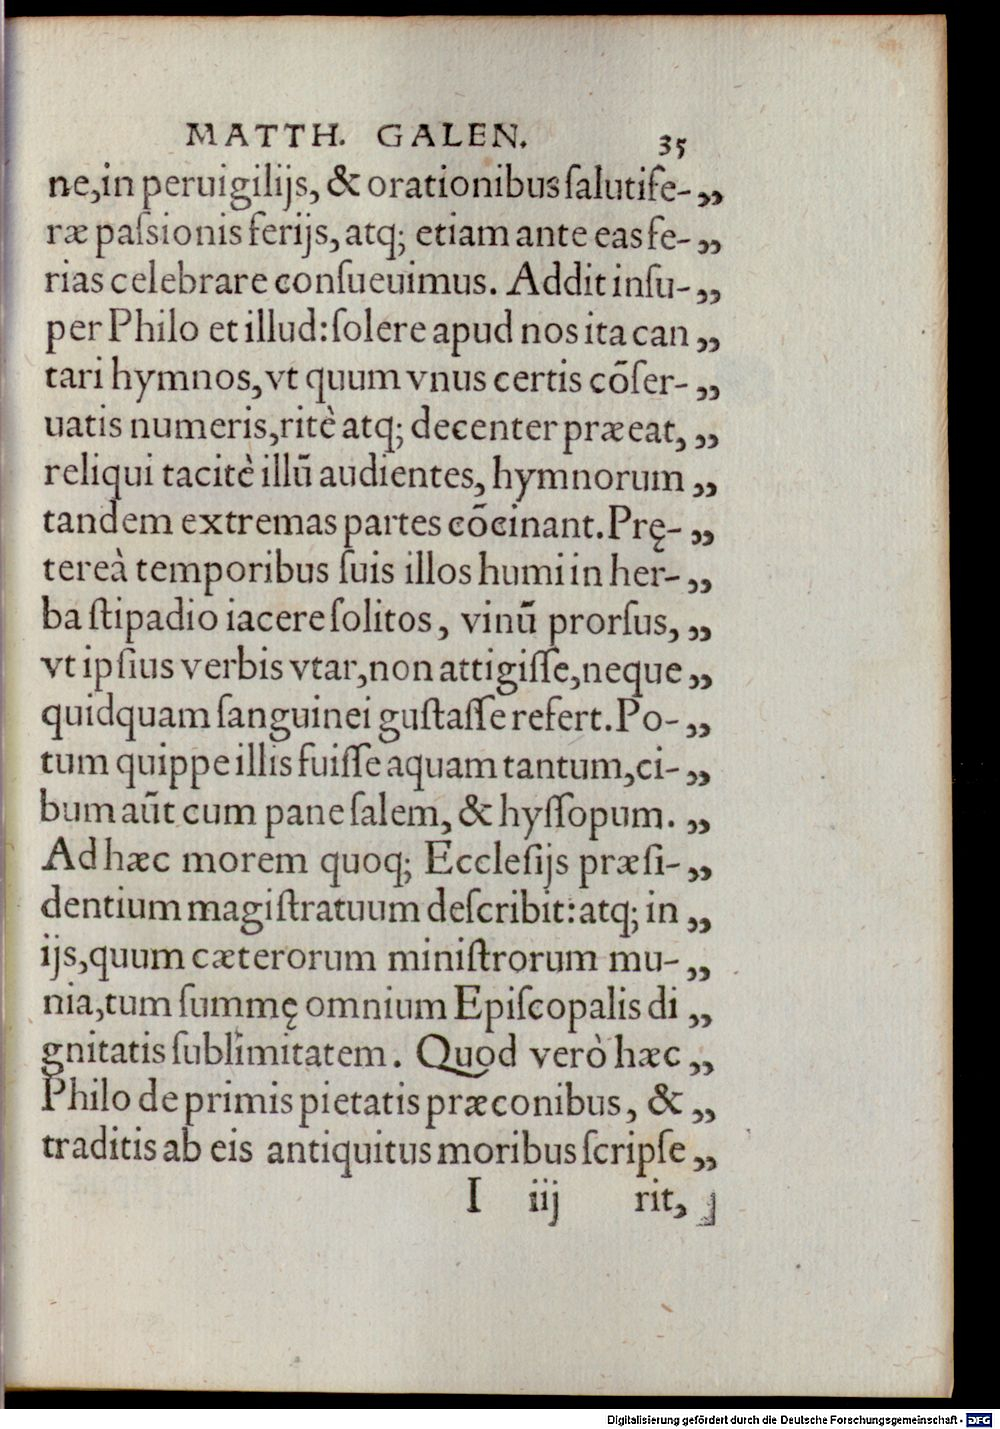 MATTH. GALEN. 35
ne,in peruigilijs, & orationibus ſalutife-„
ræ paſsionis ferijs, atq; etiam ante eas fe-„
rias celebrare conſueuimus. Addit inſu-„
per Philo et illud: ſolere apud nos ita can „
tari hymnos, vt quum vnus certis cōſer-„
uatis numeris, ritè atq; decenter præeat, „
reliqui tacitè illū audientes, hymnorum „
tandem extremas partes cōcinant. Prę-„
tereà temporibus ſuis illos humi in her-„
ba ſtipadio iacere ſolitos, vinū prorſus, „
vt ipſius verbis vtar, non attigiſſe, neque „
quidquam ſanguinei guſtaſſe refert. Po-„
tum quippe illis fuiſſe aquam tantum, ci-„
bum aūt cum pane ſalem, & hyſſopum. „
Ad hæc morem quoq; Eccleſijs præſi-„
dentium magiſtratuum deſcribit: atq; in „
ijs, quum cæterorum miniſtrorum mu-„
nia, tum ſummę omnium Epiſcopalis di „
gnitatis ſublimitatem. Quod verò hæc „
Philo de primis pietatis præconibus, & „
traditis ab eis antiquitus moribus ſcripſe „
I iij rit,
Digitalisierung gefördert durch die Deutsche Forschungsgemeinschaft - DFG